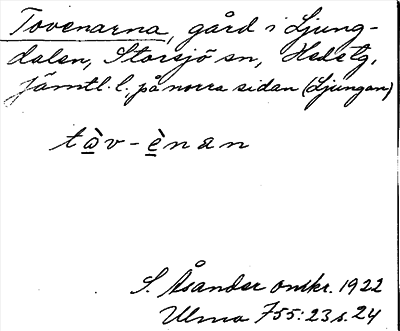 Tovenarna, gård i Ljung-
dalen, Storsjö sn, Hedetg,
Jämtl. l. på norra sidan (Ljungan)
tàv-ènan
S. Åsander omkr. 1922
Ulma 755:23 s. 24